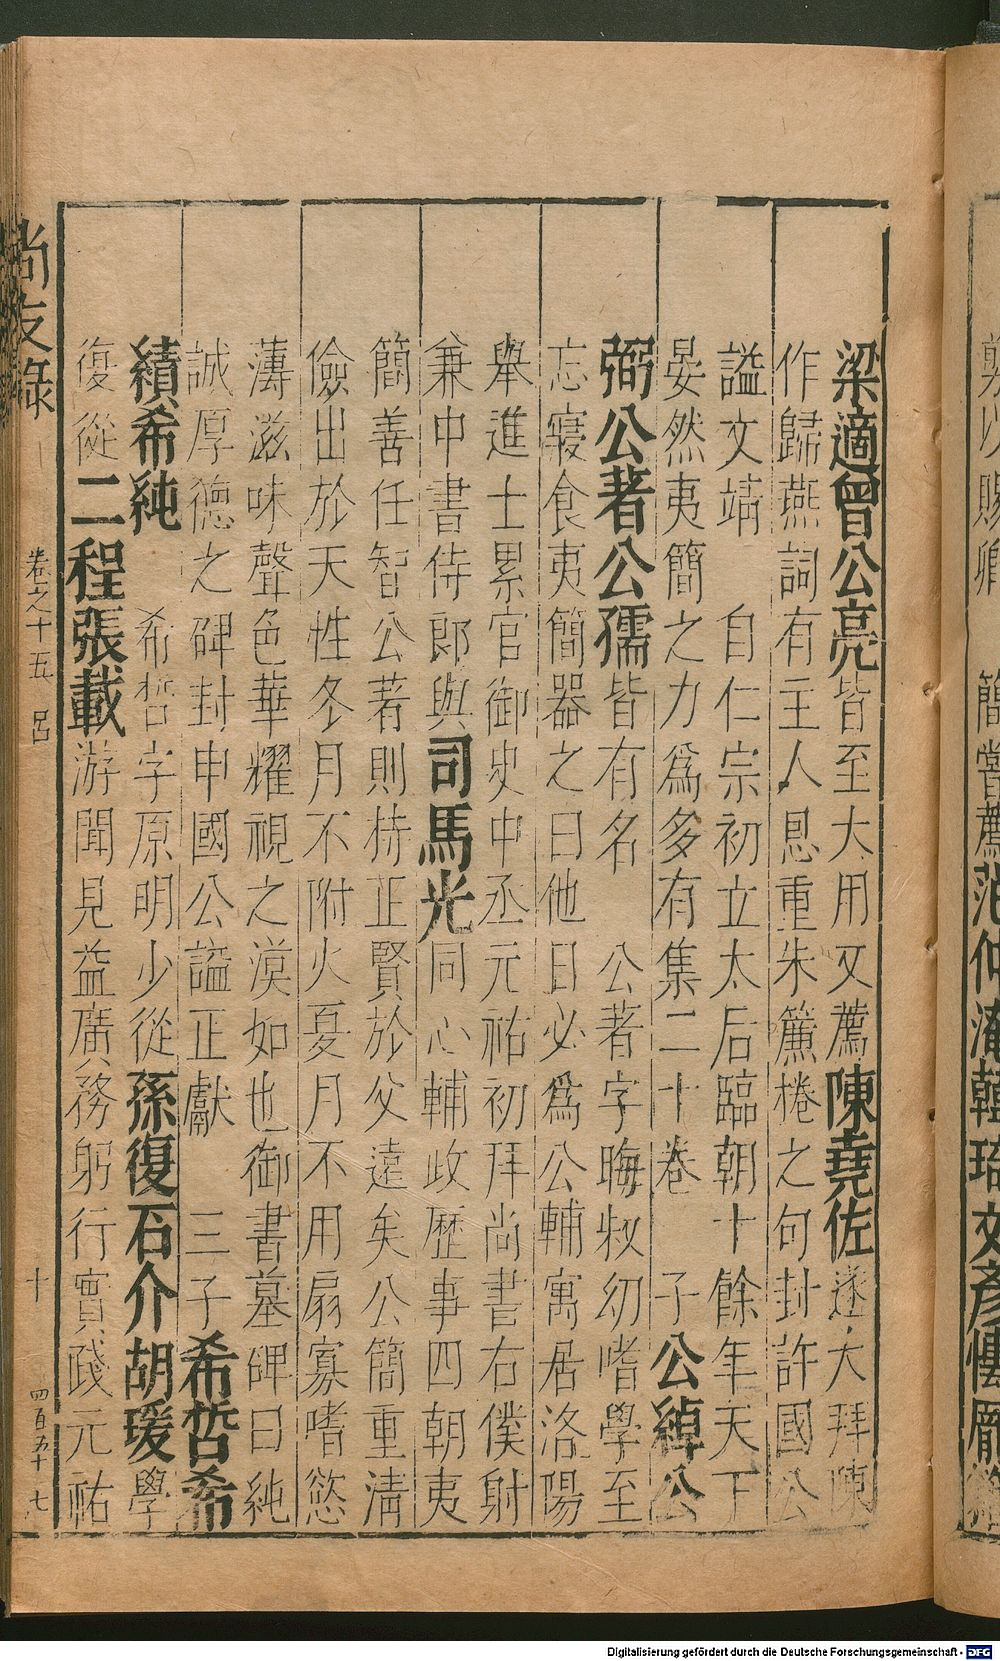 梁適曾公亮皆至大用又薦陳堯佐遂大拜陳
作歸燕詞有主人恩重朱簾捲之句封許國公
謚文靖　自仁宗初立太后臨朝十餘年天下
晏然夷簡之力爲多有集二十卷　子公綽公
弼公著公孺皆有名　公著字晦叔幼嗜學至
忘寢食夷簡器之曰他日必爲公輔寓居洛陽
舉進士累官御史中丞元祐初拜尚書右僕射
兼中書侍郎與司馬光同心輔政歷事四朝夷
簡善任智公著則持正賢於父遠矣公簡重清
儉出於天性冬月不附火夏月不用扇寡嗜慾
薄滋味聲色華耀視之漠如也御書墓碑曰純
誠厚德之碑封申國公謚正獻　三子希哲希
績希純　希哲字原明少從孫復石介胡瑗學
復從二程張載游聞見益廣務躬行實踐元祐
尚友錄
卷之十五　呂
十
四百五十七
Digitalisierung gefördert durch die Deutsche Forschungsgemeinschaft - DFG